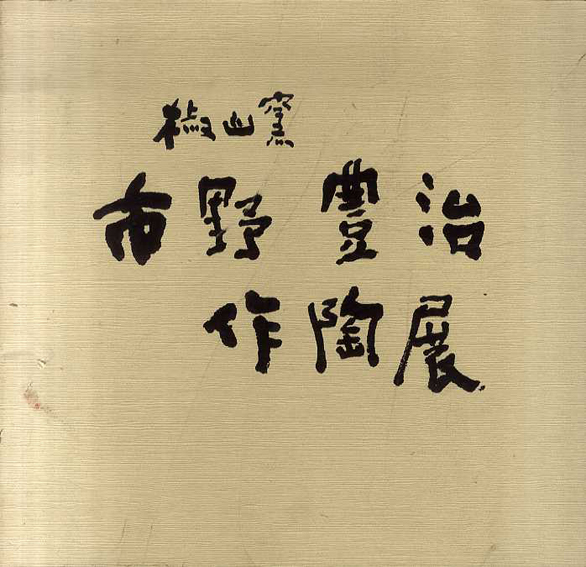 椒山窯
市野豊治
作陶展